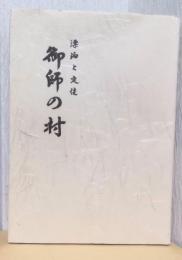 漂泊と定住
御師の村